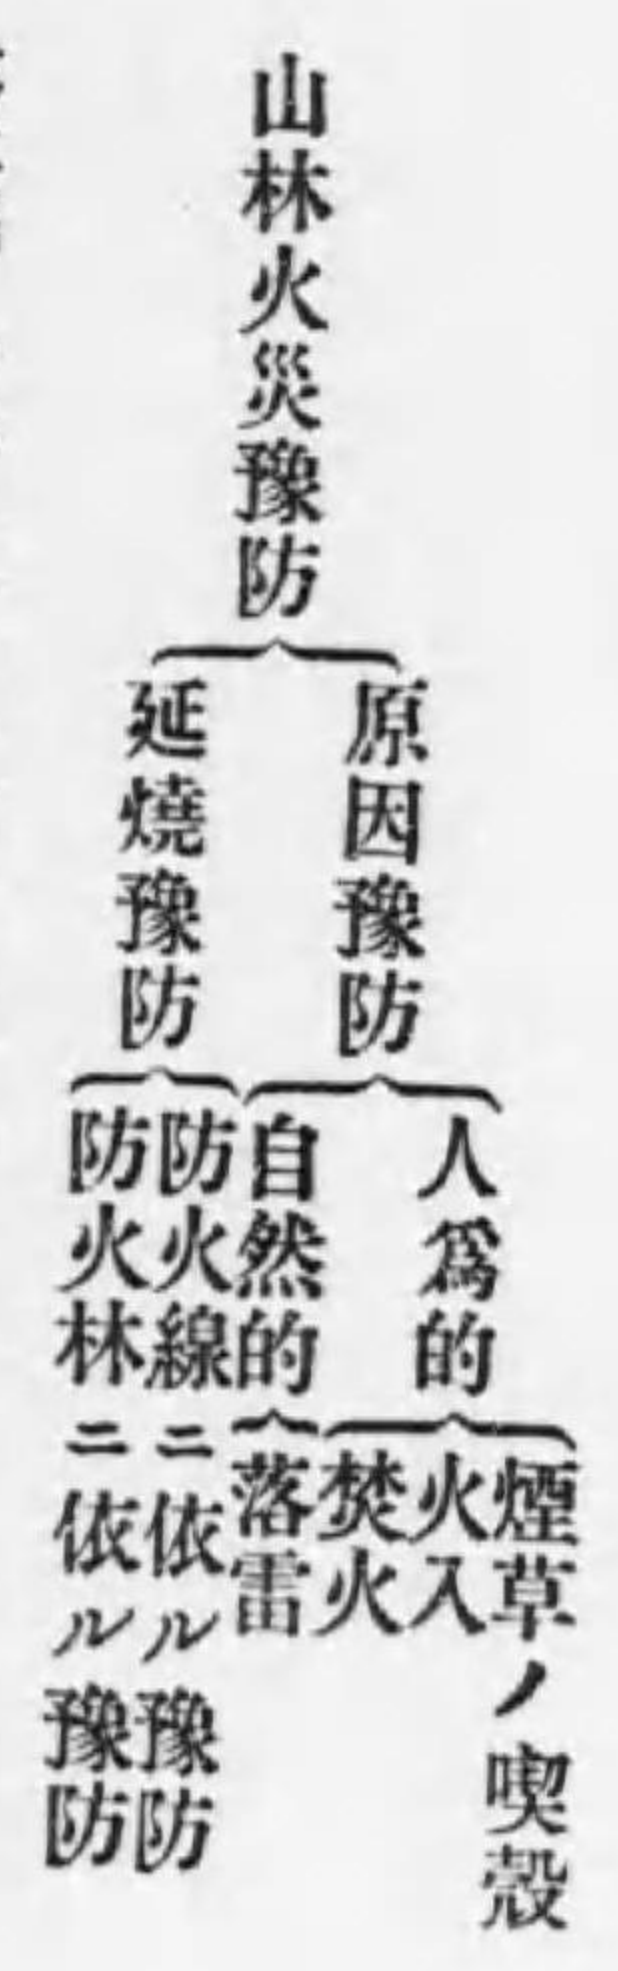 山林火災豫防
原因豫防
人爲的
煙草ノ喫殻
火入
焚火
自然的
落雷
延燒豫防
防火線ニ依ル豫防
防火林ニ依ル豫防